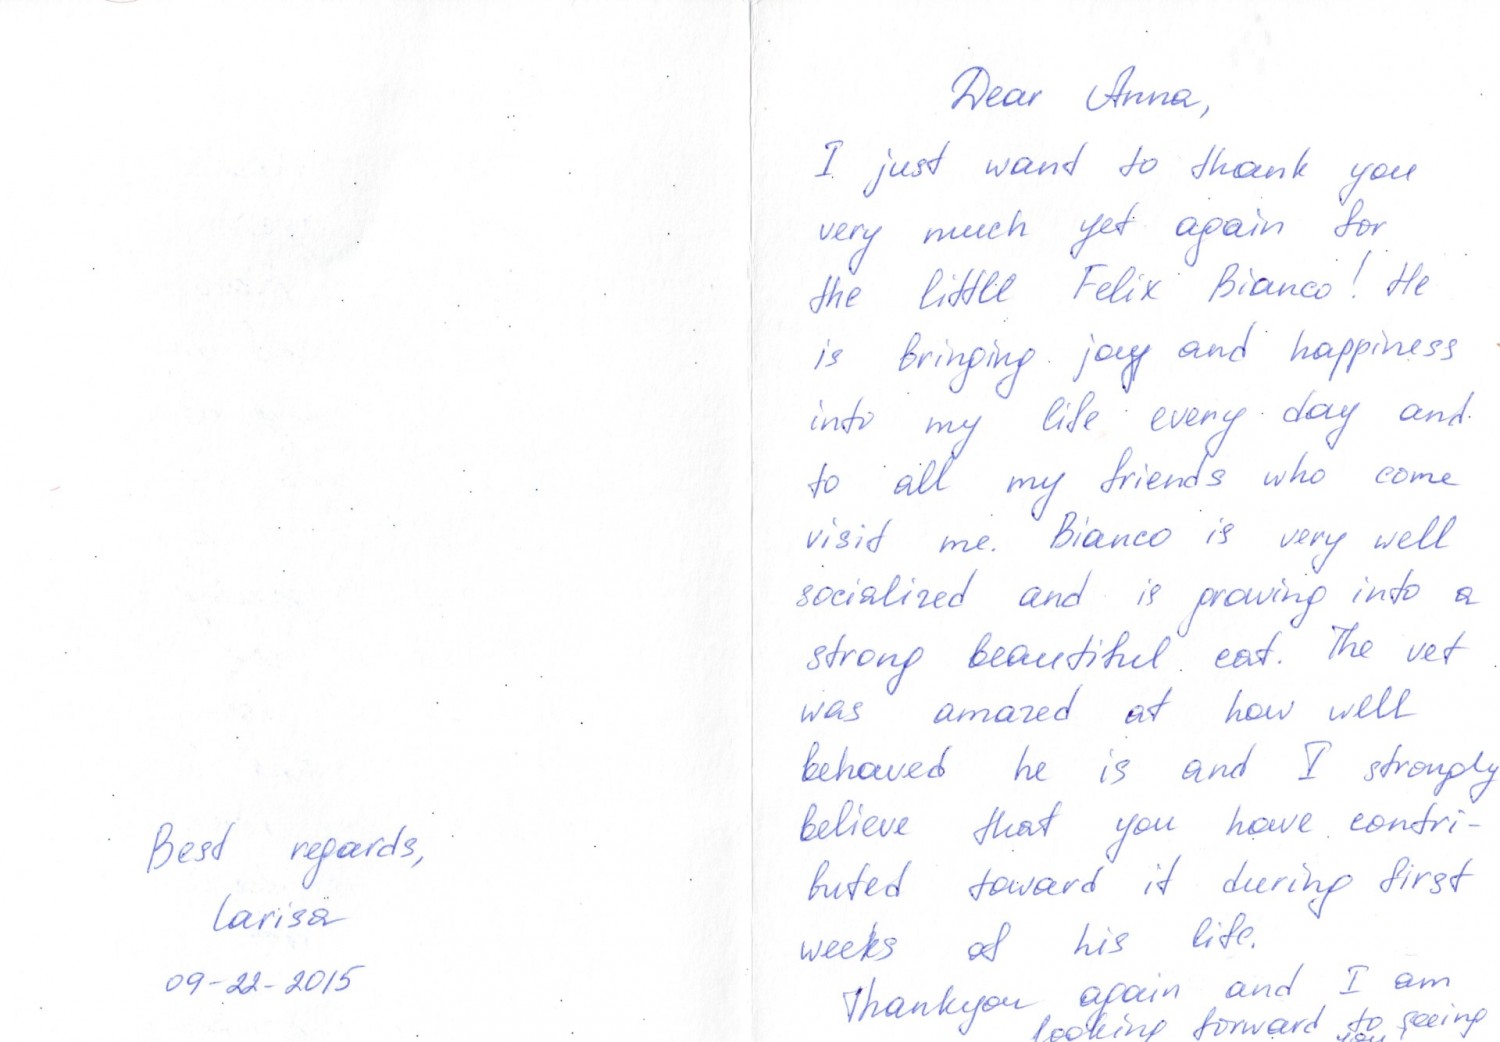 Dear Anna,
I just want to thank you
very much yet again for
the little Felix Bianco! He
is bringing joy and happiness
into my life every day and
to all my friends who come
visit me. Bianco is very well
socialized and is growing into a
strong beautiful cat. The vet
was amazed at how well
behaved he is and I strongly
believe that you have contri-
buted toward it during first
weeks of his life.
Thankyou again and I am
looking forward to seeing
you
Best regards,
Larisa
09-22-2015